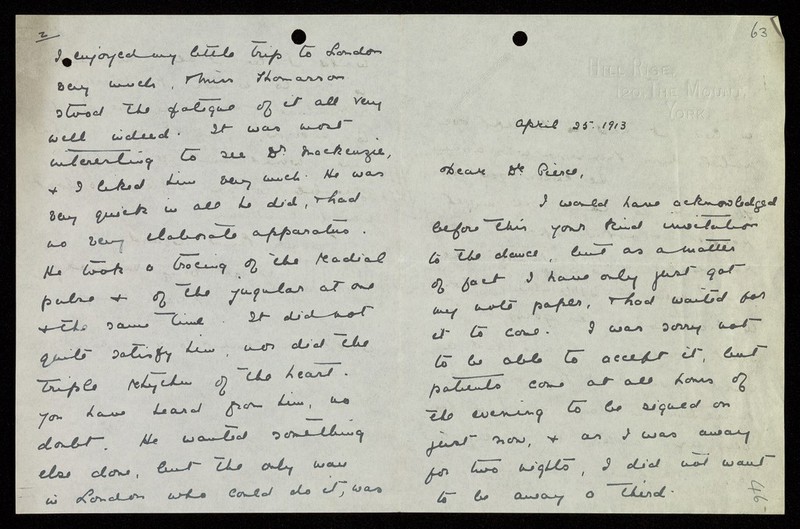 63
HILL RISE,
120, THE MOUNT,
YORK.
April 25. 1913
Dear Dr Pierce,
I would have acknowledged
before this your kind invitation
to the dance, but as a matter
of fact I have only just got
my note paper, & had waited for
it to come. I was sorry not
to be able to accept it, but
patients come at all hours of
the evening to be signed on
just now, & as I was away
for two nights, I did not want
to be away a third.
46
2
I enjoyed my little trip to London
very much, & Miss Thomasson
stood the fatigue of it all very
well indeed. It was most
interesting to see Dr Mackenzie,
& I liked him very much. He was
very quick in all he did, & had
no very elaborate apparatus.
He took a tracing of the radial
pulse & of the jugular at one
& the same time. It did not
quite satisfy him, nor did the
triple rhythm of the heart.
You have heard from him, no
doubt. He wanted something
else done, but the only man
in London who could do it, was